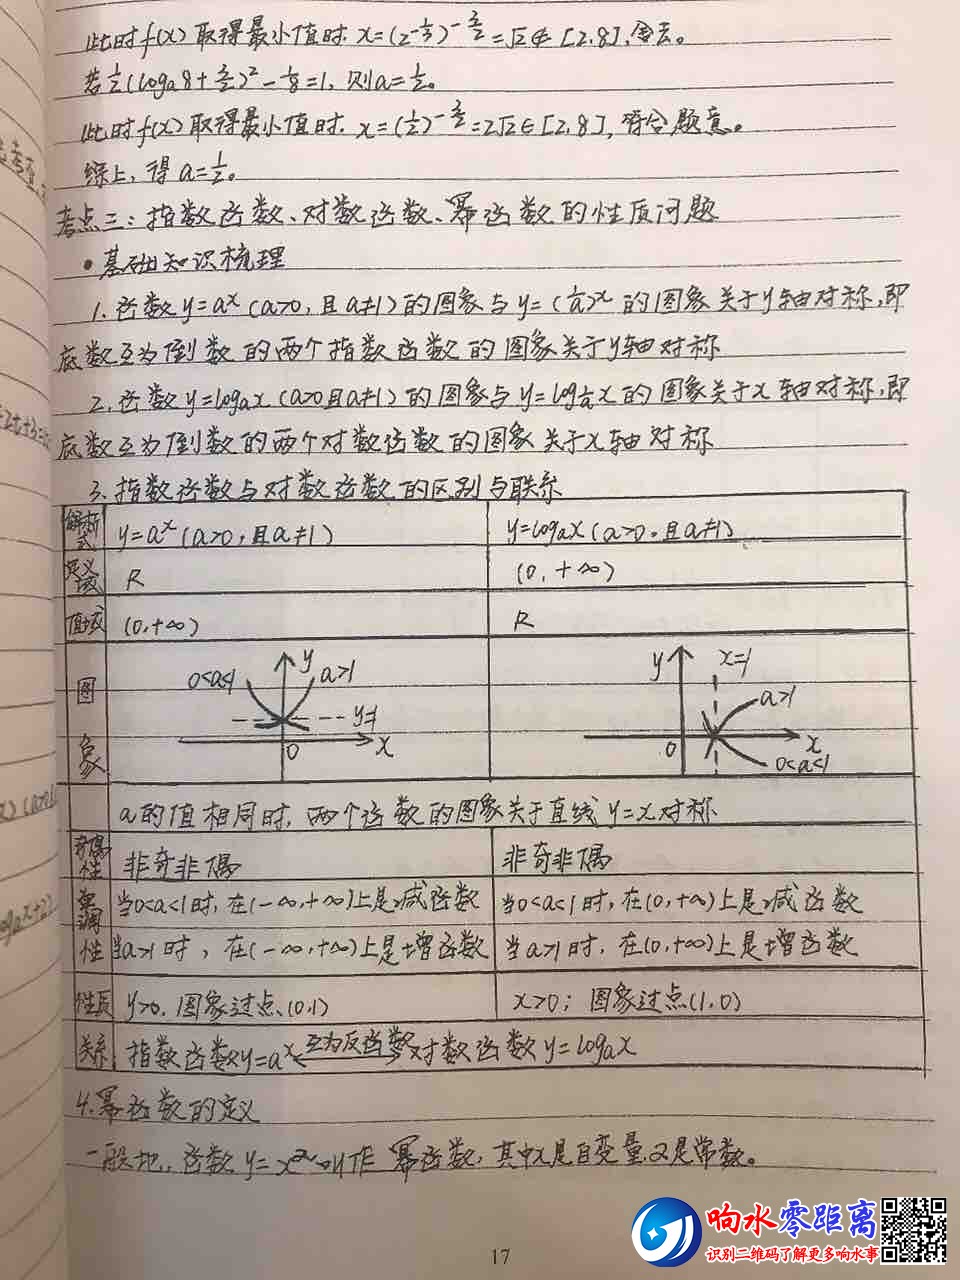 此时f(x)取得最小值时. x=(2^{-1/3})^{-3/2}=√2∉[2,8],舍去。
若½(logₐ8+3/2)²-1/8=1,则a=½。
此时f(x)取得最小值时. x=(½)^{-3/2}=2√2∈[2,8],符合题意。
综上,得a=½。
考点三:指数函数、对数函数、幂函数的性质问题
•基础知识梳理
1.函数y=aˣ(a>0,且a≠1)的图象与y=(1/a)ˣ的图象关于y轴对称,即
底数互为倒数的两个指数函数的图象关于y轴对称
2.函数y=logₐx(a>0且a≠1)的图象与y=log_{1/a}x的图象关于x轴对称,即
底数互为倒数的两个对数函数的图象关于x轴对称
3.指数函数与对数函数的区别与联系
解析式 y=aˣ(a>0,且a≠1) y=logₐx(a>0,且a≠1)
定义域 R (0,+∞)
值域 (0,+∞) R
图象 0<a<1 y a>1 y=1 0 x y x=1 a>1 0 x 0<a<1
a的值相同时,两个函数的图象关于直线y=x对称
奇偶性 非奇非偶 非奇非偶
单调性 当0<a<1时,在(-∞,+∞)上是减函数 当0<a<1时,在(0,+∞)上是减函数
当a>1时,在(-∞,+∞)上是增函数 当a>1时,在(0,+∞)上是增函数
性质 y>0,图象过点(0,1) x>0;图象过点(1,0)
关系 指数函数y=aˣ 互为反函数 对数函数y=logₐx
4.幂函数的定义
一般地,函数y=x^α叫作幂函数,其中x是自变量,α是常数。
17
响水零距离
识别二维码了解更多响水事